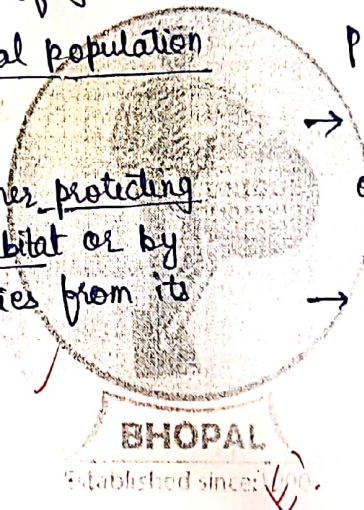 al population
P
→
protecting
bitat or by
ies from its
→
BHOPAL
Established since: